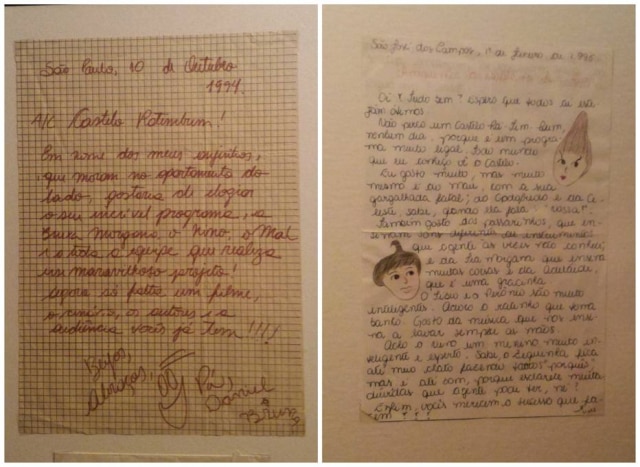 São Paulo, 10 de Outubro
1994.
A/C Castelo Ratimbum!
Em nome dos meus
que moram no apartamento do
lado, gostaria de elogiar
o seu incrível programa, a
Bruxa Morgana, o Nino, o Mal
e toda a equipe que realiza
maravilhoso projeto!
Agora só falta um filme,
o cenário, os autores e a
audiência vocês já tem!!!!
Beijos,
Abraços,
Daniel
São José dos Campos, de Janeiro de 1995.
Oi! Tudo bem? Espero que todos aí
jam ótimos.
Não perco um Castelo Rá Tim Bum,
nenhum dia, porque é um progra
ma muito legal.
que eu conheço é o Castelo.
Eu gosto muito, mas muito
mesmo é do Mau, com a sua
gargalhada fatal; do Godofredo e da Ce
leste, sabe, quando ela fala
Também gosto dos passarinhos, que en-
sinam sons diferentes de instrumentos
que agente às vezes não conhece;
e da Morgana que ensina
muitas coisas e da
que é uma gracinha.
O Tíbio e o Perônio são muito
inteligentes. Adoro o ratinho que toma
banho. Gosto da música que nos ensi-
na a lavar sempre as mãos.
Acho o Nino um menino muito in-
teligente e esperto. Sabe, o Zequinha fica
até meio chato fazendo "porquê"
mas é até bom, porque esclarece muitas
dúvidas que agente pode ter, né?
Enfim, vocês merecem o sucesso que fa-
zem!!!